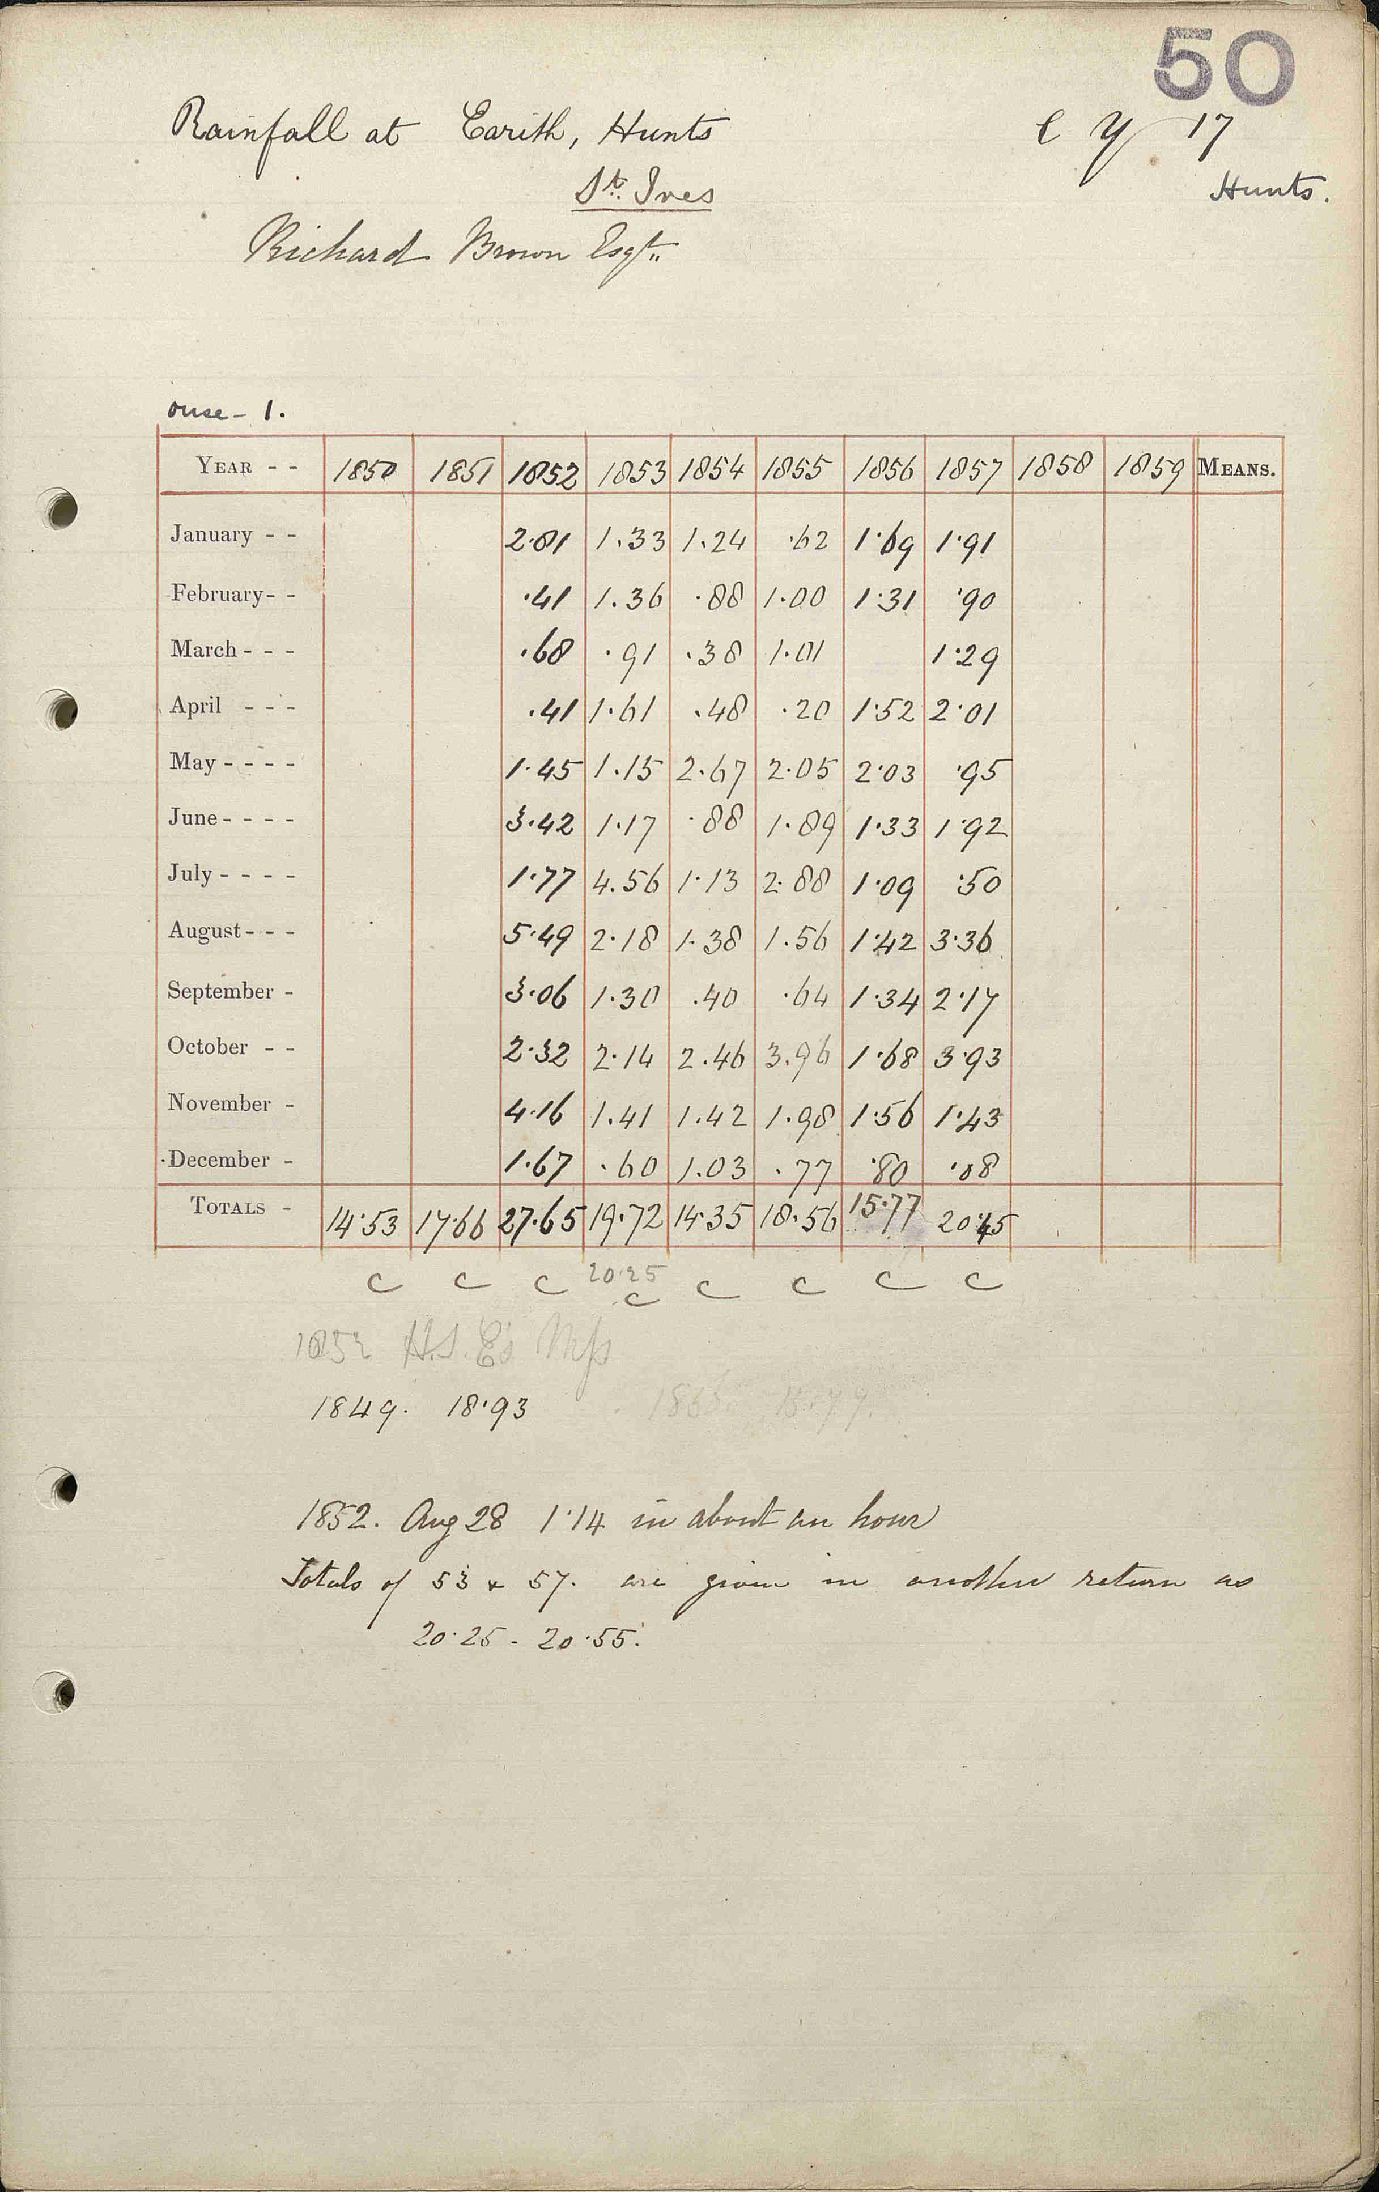 50
Rainfall at Earith, Hunts
St. Ives
17
Hunts.
Richard Brown Esqr.
ouse - 1.
YEAR - - 1850 1851 1852 1853 1854 1855 1856 1857 1858 1859 MEANS.
January - - 2.81 1.33 1.24 .62 1.69 1.91
February - - .41 1.36 .88 1.00 1.31 .90
March - - - .68 .91 .38 1.01 1.29
April - - - .41 1.61 .48 .20 1.52 2.01
May - - - - 1.45 1.15 2.67 2.05 2.03 .95
June - - - - 3.42 1.17 .88 1.89 1.33 1.92
July - - - - 1.77 4.56 1.13 2.88 1.09 .50
August - - - 5.49 2.18 1.38 1.56 1.42 3.36
September - 3.06 1.30 .40 .64 1.34 2.17
October - - 2.32 2.14 2.46 3.96 1.68 3.93
November - 4.16 1.41 1.42 1.98 1.56 1.43
December - 1.67 .60 1.03 .77 .80 .08
TOTALS - 14.53 17.66 27.65 19.72 14.35 18.56 15.77 20.45
c c c 20.25 c c c c c
1852 H.S. E's Mss
1849. 18.93
1852. Aug 28 1.14 in about an hour
Totals of 53 & 57. are given in another return as
20.25 - 20.55.